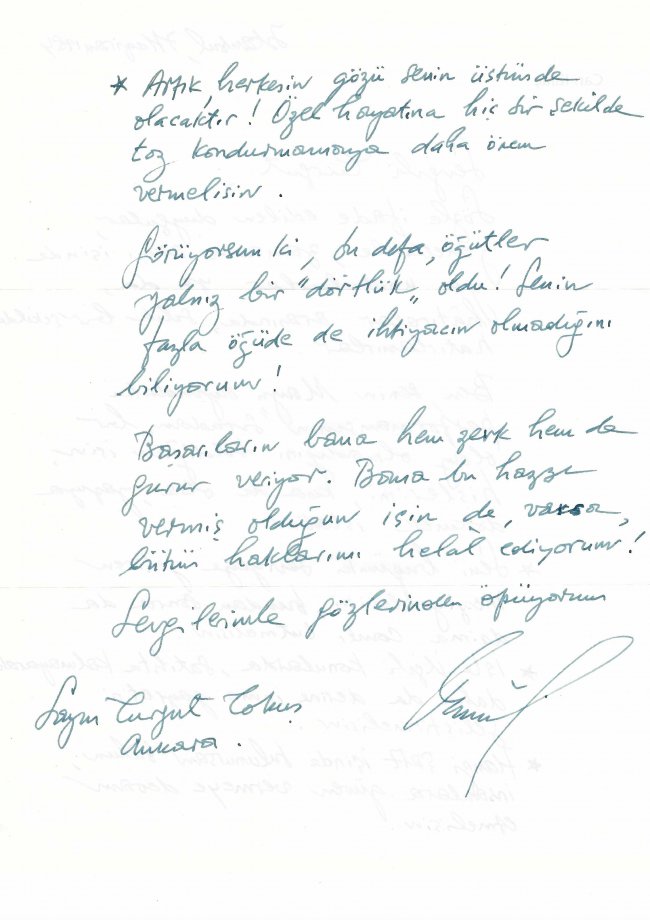 * Artık, herkesin gözü senin üstünde
olacaktır! Özel hayatına hiç bir şekilde
toz kondurmamaya daha önem
vermelisin.
Görüyorsun ki, bu defa, öğütler
yalnız bir "dörtlük" oldu! Senin
fazla öğüde de ihtiyacın olmadığını
biliyorum!
Başarıların bana hem zevk hem de
gurur veriyor. Bana bu hazzı
vermiş olduğun için de, varsa,
bütün haklarımı helal ediyorum!
Sevgilerimle gözlerinden öpüyorum
Sayın Turgut Tokuş
Ankara.